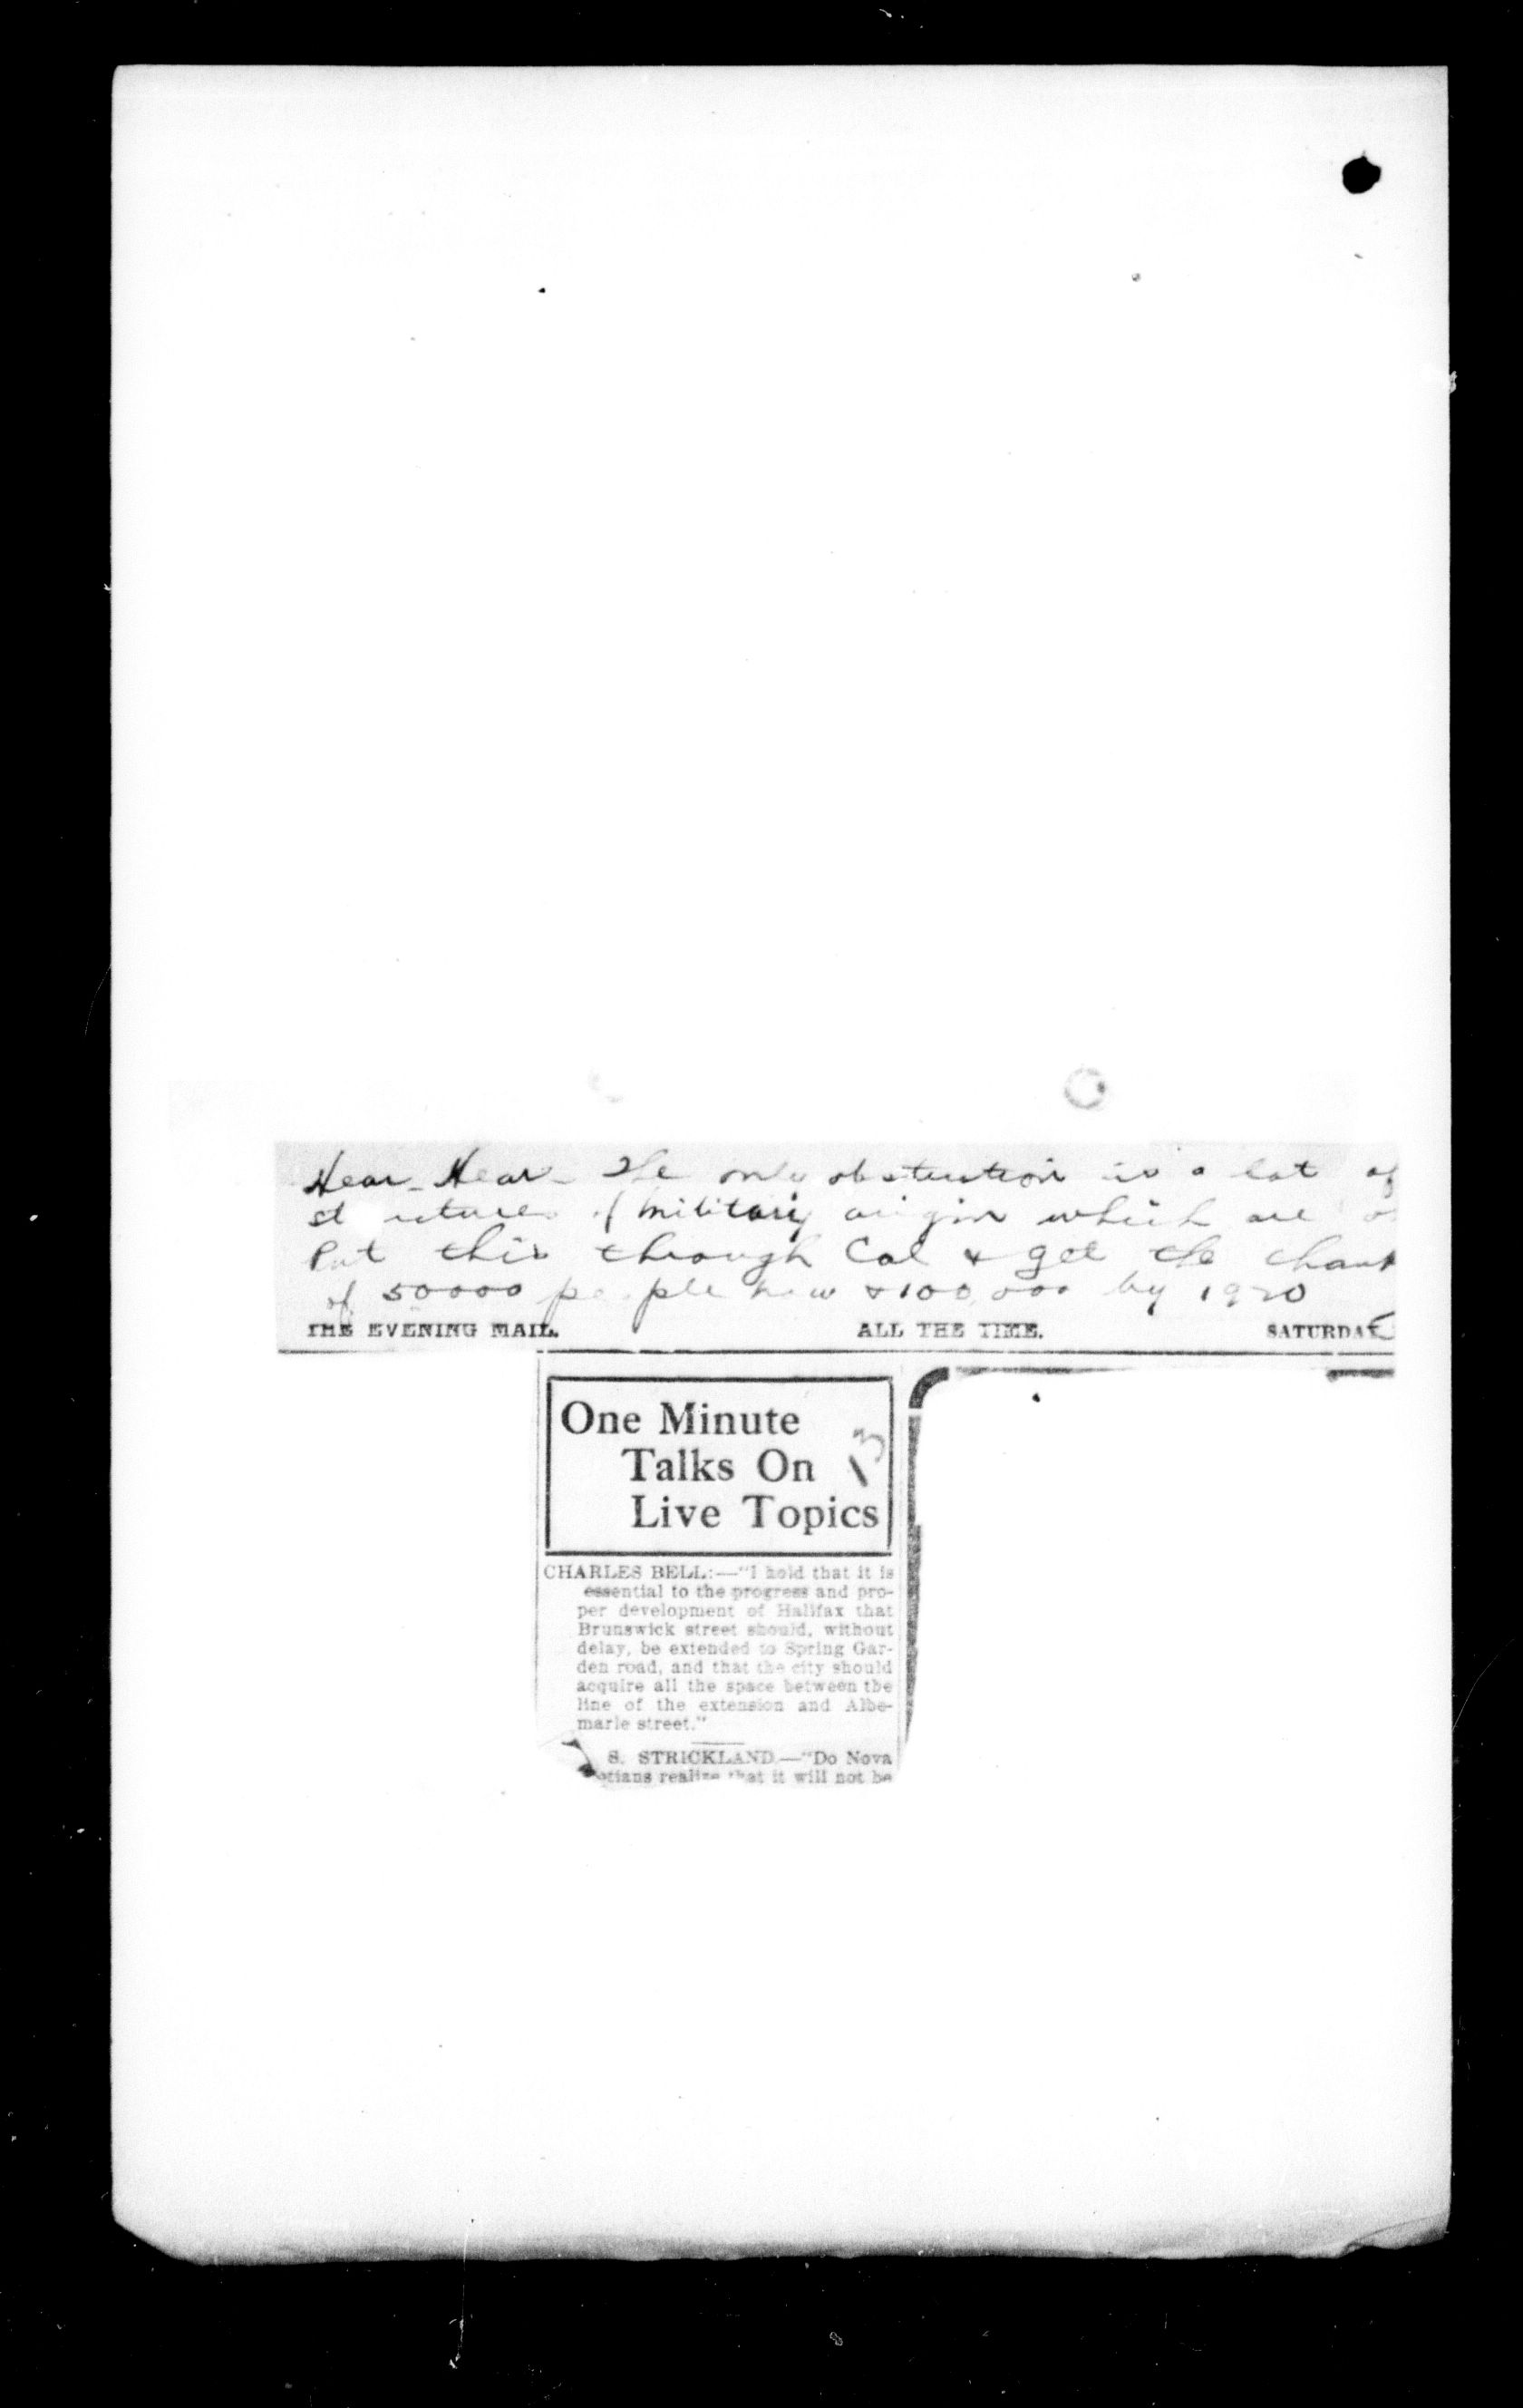 Hear - Hear - The only obstruction is a lot of
st uctures of military origin which are
Put this through Col & get the thank
of 50000 people now & 100,000 by 1920
THE EVENING MAIL. ALL THE TIME. SATURDAY
One Minute
Talks On
Live Topics
13
CHARLES BELL:—"I hold that it is
essential to the progress and pro-
per development of Halifax that
Brunswick street should, without
delay, be extended to Spring Gar-
den road, and that the city should
acquire all the space between the
line of the extension and Albe-
marle street."
S. STRICKLAND.—"Do Nova
otians realize that it will not be